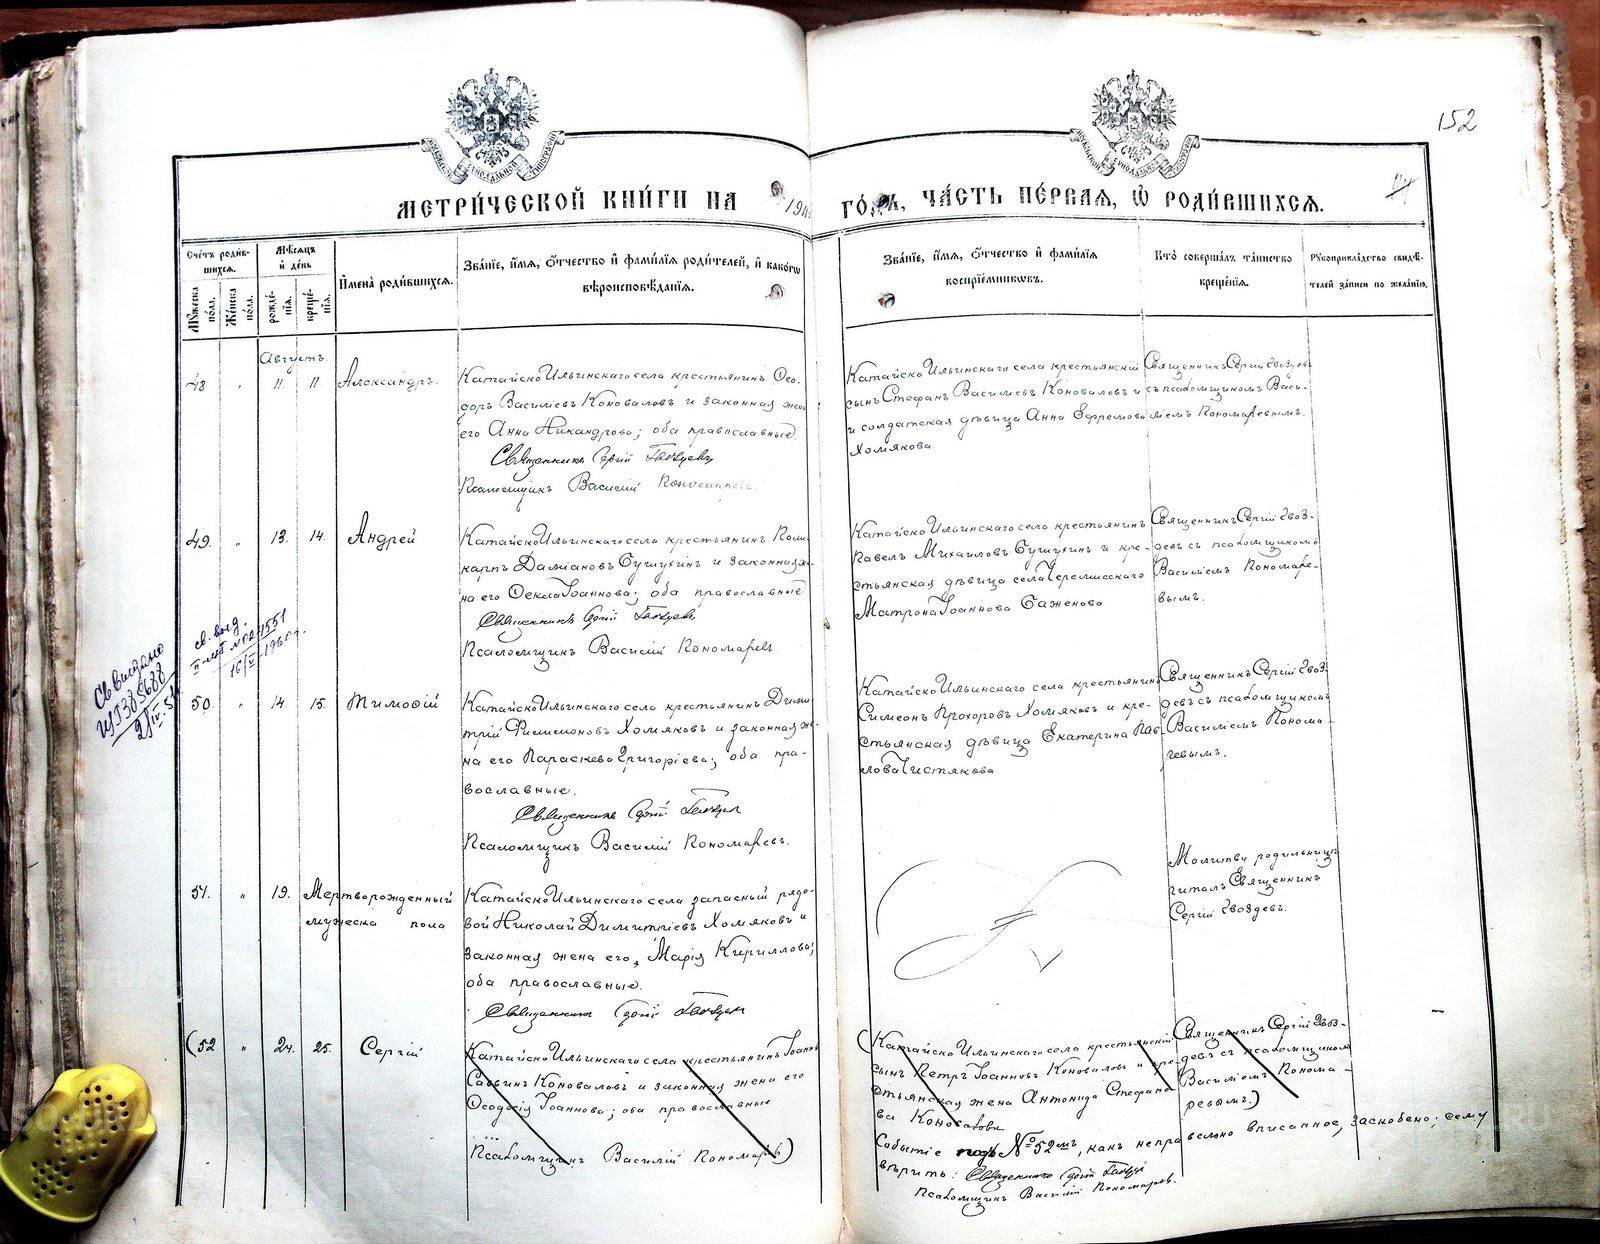 152
МЕТРИ́ЧЕСКОЙ КНИ́ГИ НА 191 ГО́ДЪ, ЧА́СТЬ ПЕ́РВАЯ, Ѡ РОДИ́ВШИХСЯ.
Сче́тъ роди́в-
шихся.
Мѣ́сяцъ
и де́нь
Му́жеска по́ла.
Же́нска по́ла.
рожде́-
нія.
креще́-
нія.
Имена̀ роди́вшихся.
Зва́ніе, и́мя, о́тчество и фами́лія роди́телей, и како́гѡ
вѣроисповѣ́данія.
Зва́ніе, и́мя, о́тчество и фами́лія
воспріе́мниковъ.
Кто̀ соверша́лъ та́инство
креще́нія.
Рукоприкла́дство свидѣ́-
телей за́писи по жела́нію.
Августъ.
48 " 11. 11 Александръ.
Катайско Ильинскаго села крестьянинъ Ѳео-
доръ Василіевъ Коноваловъ и законная жена
его Анна Никандрова; оба православные.
Священникъ Сергій Гвоздевъ
Псаломщикъ Василій Пономаревъ.
Катайско Ильинскаго села крестьянскій
сынъ Стефанъ Василіевъ Коноваловъ и
и солдатская дѣвица Анна Ефремова
Хомякова
Священникъ Сергій Гвоздевъ
съ псаломщикомъ Васи-
ліемъ Пономаревымъ.
49. " 13. 14. Андрей
Катайско Ильинскаго села крестьянинъ Поли-
карпъ Даміановъ Сушихинъ и законная же-
на его Ѳекла Іоаннова; оба православные
Священникъ Сергій Гвоздевъ
Псаломщикъ Василій Пономаревъ
Катайско Ильинскаго села крестьянинъ
Павелъ Михаиловъ Сушихинъ и кре-
стьянская дѣвица села Черемисскаго
Матрона Іоаннова Баженова
Священникъ Сергій Гвоз-
девъ съ псаломщикомъ
Василіемъ Пономаре-
вымъ.
Св выдано
св. выд.
50 " 14. 15. Тимоѳій
Катайско Ильинскаго села крестьянинъ Дими-
трій Филимоновъ Хомяковъ и законная же-
на его Параскева Григоріева; оба пра-
вославные.
Священникъ Сергій Гвоздевъ
Псаломщикъ Василій Пономаревъ.
Катайско Ильинскаго села крестьянинъ
Симеонъ Прохоровъ Хомяковъ и кре-
стьянская дѣвица Екатерина Пав-
лова Чистякова
Священникъ Сергій Гвоз-
девъ съ псаломщикомъ
Василіемъ Понома-
ревымъ.
51. " 19. Мертворожденный
мужеска пола
Катайско Ильинскаго села запасный рядо-
вой Николай Димитріевъ Хомяковъ и
законная жена его, Марія Кириллова;
оба православные.
Священникъ Сергій Гвоздевъ
Молитву родильницѣ
читалъ Священникъ
Сергій Гвоздевъ.
(52 " 24. 25. Сергій
Катайско Ильинскаго села крестьянинъ Іоаннъ
Саввинъ Коноваловъ и законная жена его
Ѳеодосія Іоаннова; оба православные
Псаломщикъ Василій Пономаревъ)
(Катайско Ильинскаго села крестьянскій
сынъ Петръ Іоанновъ Коноваловъ и кре-
стьянская жена Антонида Стефано-
ва Коновалова
Священникъ Сергій Гвоз-
девъ съ псаломщикомъ
Василіемъ Понома-
ревымъ.)
Событіе подъ №52мъ, какъ неправильно вписанное, заскоблено; сему
вѣрить: Священникъ Сергій Гвоздевъ
Псаломщикъ Василій Пономаревъ.